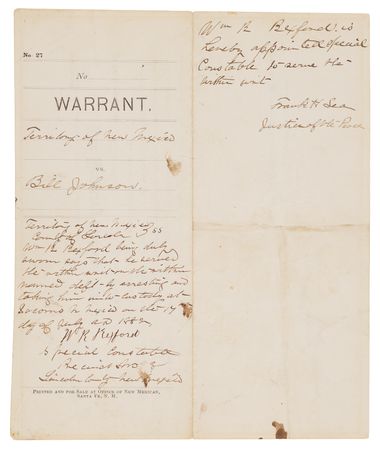 No 27
No
WARRANT.
Territory of New Mexico
vs.
Bill Johnson.
Territory of New Mexico
County of Lincoln } ss
Wm R Rexford being duly
sworn says that he served
the within writ on the within
named deft by arresting and
taking him into custody at
Socorro N Mexico on the 14
day of July AD 1882
W R Rexford
Special Constable
Precinct No
Lincoln County New Mexico
Printed and for Sale at Office of New Mexican,
Santa Fe, N. M.
Wm R Rexford is
hereby appointed Special
Constable to serve the
within writ
Frank H Lea
Justice of the Peace